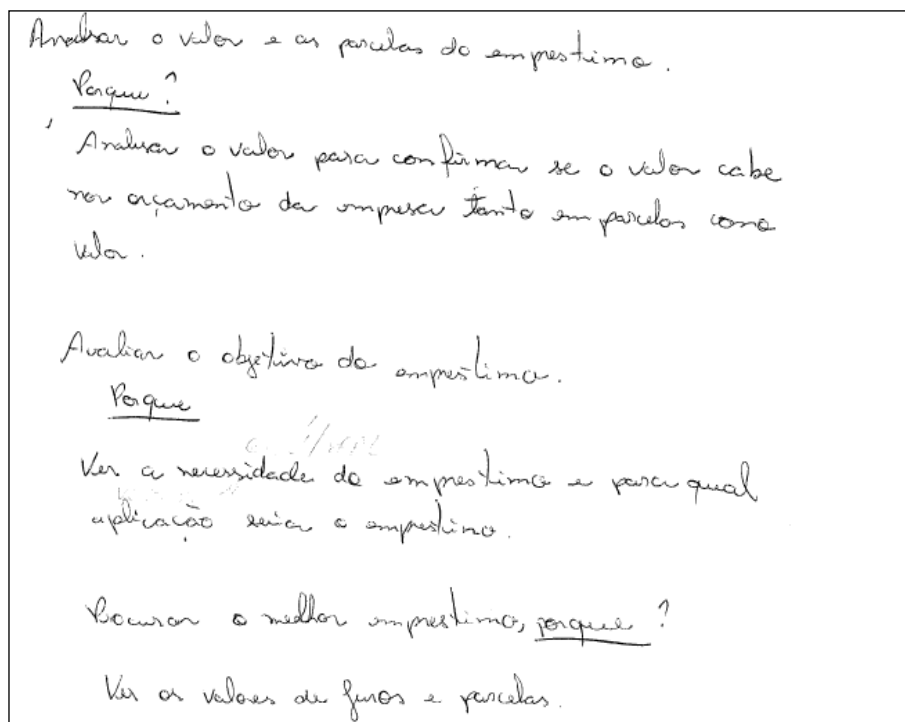 Analisar o valor e as parcelas do emprestimo.
Porque?
Analisar o valor para confirmar se o valor cabe
nor orçamento da empresa tanto em parcelas como
valor.
Avaliar o objetivo do emprestimo.
Porque
Ver a necessidade do emprestimo e para qual
aplicação seria o emprestimo.
Procurar o melhor emprestimo, porque?
Ver os valores de juros e parcelas.